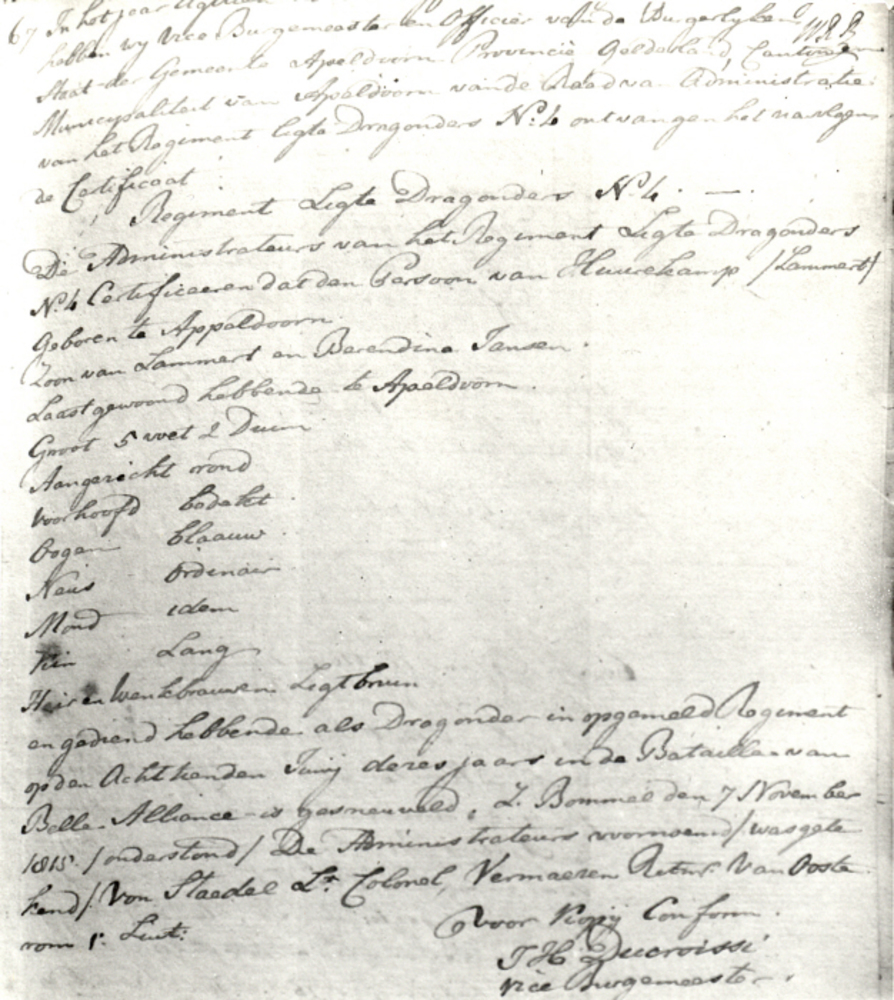 67 In het jaar
hebben wy Vice Burgemeester en Officier van de Burgerlyken
Staat der Gemeente Apeldoorn Provincie Gelderland Canton en
Municipaliteit van Apeldoorn van de Raad van Administratie
van het Regiment ligte Dragonders No: 4 ontvangen het navolgen
de Certificaat
Regiment Ligte Dragonders No 4. —
De Administrateurs van het Regiment Ligte Dragonders
No. 4 Certificeeren dat den Persoon van Huurekamp /Lammert/
Geboren te Appeldoorn
Zoon van Lammert en Berendina Jansen.
Laast gewoond hebbende te Apeldoorn.
Groot 5 voet 2 Duim
Aangezicht rond
Voorhoofd bedekt
Oogen blaauw
Neus ordinair
Mond idem
Kin Lang
Hair en Wenkbrauwen Ligtbruin
en gediend hebbende als Dragonder in opgemeld Regiment
op den Achttienden Junij dezes jaars in de Bataille van
Belle Alliance is gesneuveld, Z. Bommel den 7 November
1815. /onderstond/ De Administrateurs voornoemd /was gete
kend/ Von Staedel Lt. Colonel, Vermaesen Van Ooste
rom 1e. Luit:
Voor Kopij Conform.
J H Ducroissi
Vice Burgemeester.